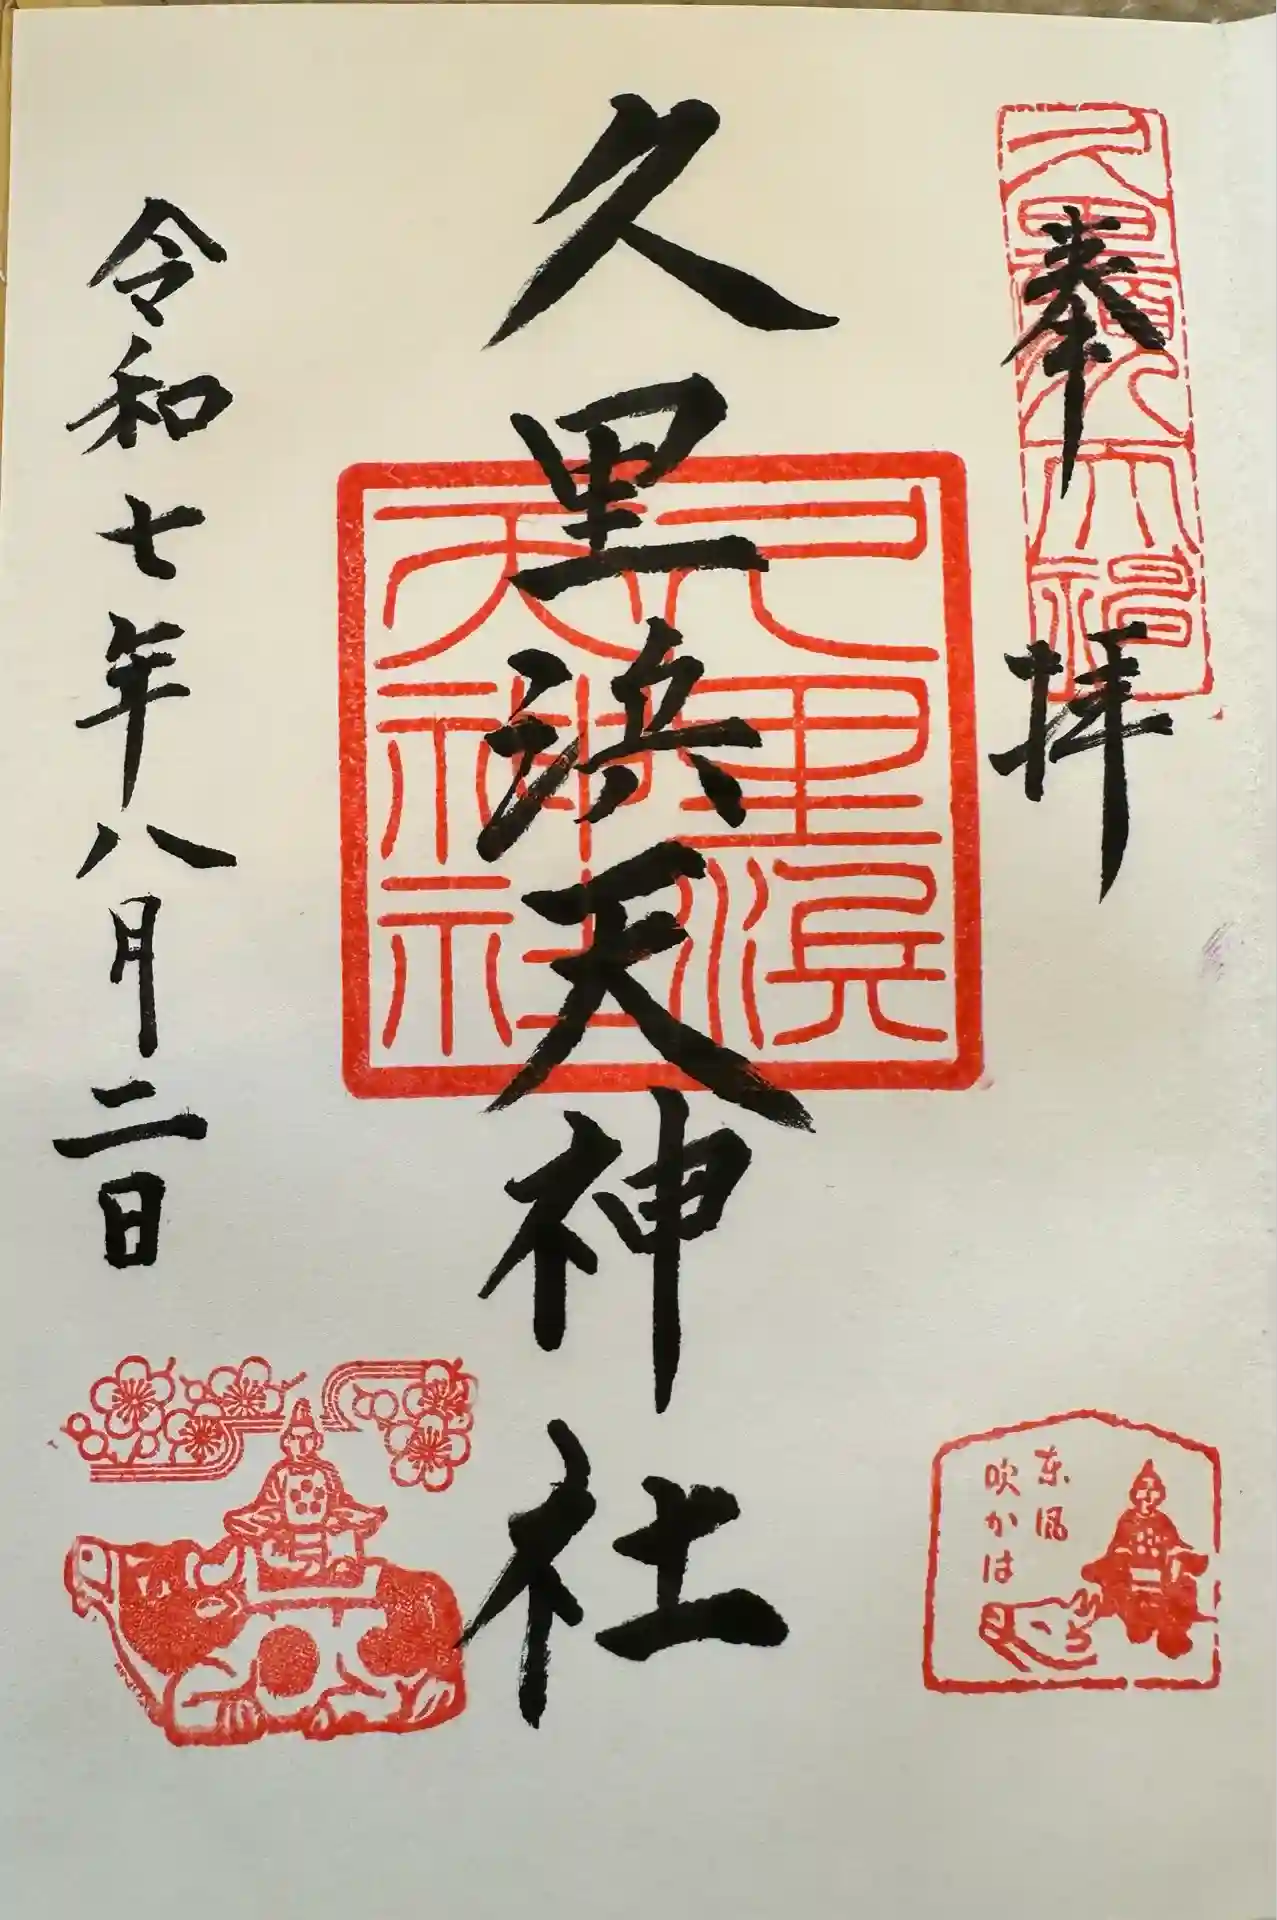 奉拝
久里濱天神社
久里浜天神社
令和七年八月二日
东風
吹かは